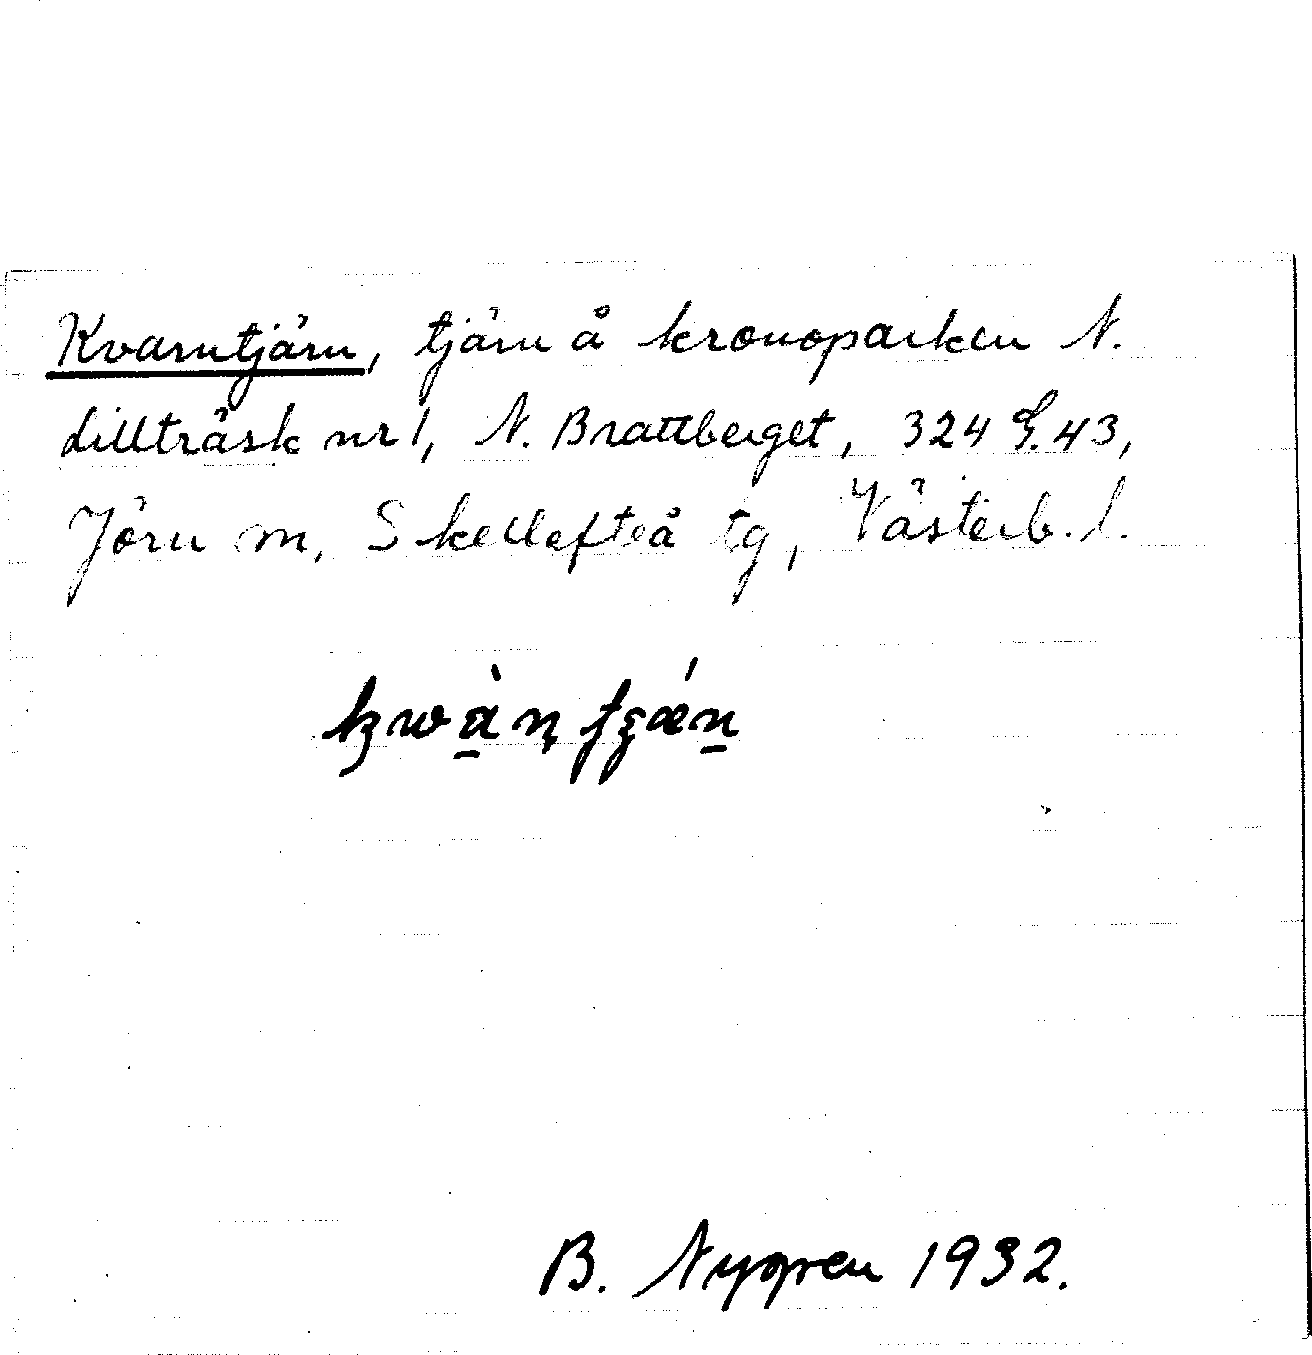 Kvarntjärn, tjärn å kronoparken N.
Lillträsk nr 1, N. Brattberget, 324 G. 43,
Jörn m, Skellefteå tg, Västerb. l.
B. Nygren 1932.